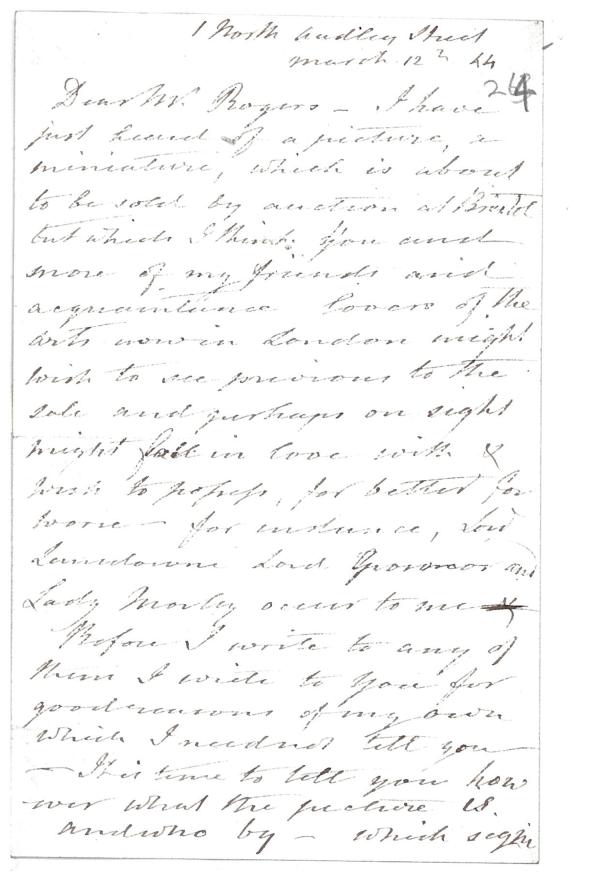 1 North Audley Street
March 12th 44
244
Dear Mr. Rogers – I have
just heard of a picture, a
miniature, which is about
to be sold by auction at Bristol
but which I think you and
more of my friends and
acquaintance lovers of the
arts now in London might
wish to see previous to the
sale and perhaps on sight
might fall in love with &
wish to possess, for better for
worse – for instance, Lord
Lansdowne Lord and
Lady Morley occur to me
Before I write to any of
them I write to you for
good reasons of my own
which I need not tell you –
– It is time to tell you how
ever what the picture is
and who by – which